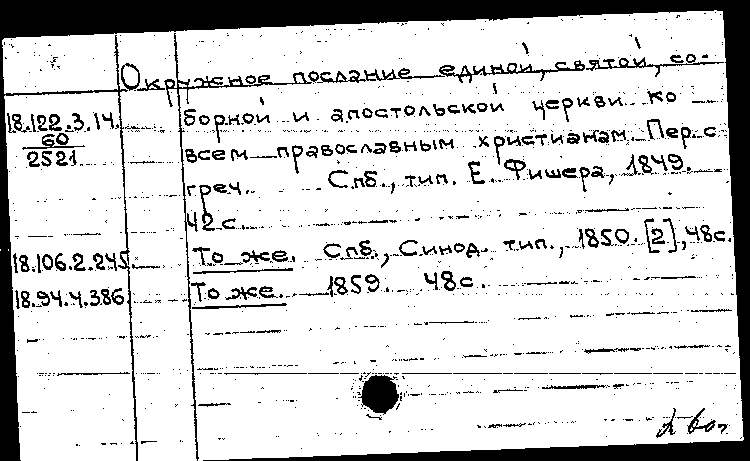 Окружное послание единой, святой, со-
18.122.3.14. борной и апостольской церкви ко
60
2521 всем православным христианам. Пер. с
греч. Спб., тип. Е. Фишера, 1849.
42 с.
18.106.2.245. То же. Спб., Синод. тип., 1850. [2], 48с.
18.94.4.386. То же. 1859. 48с.